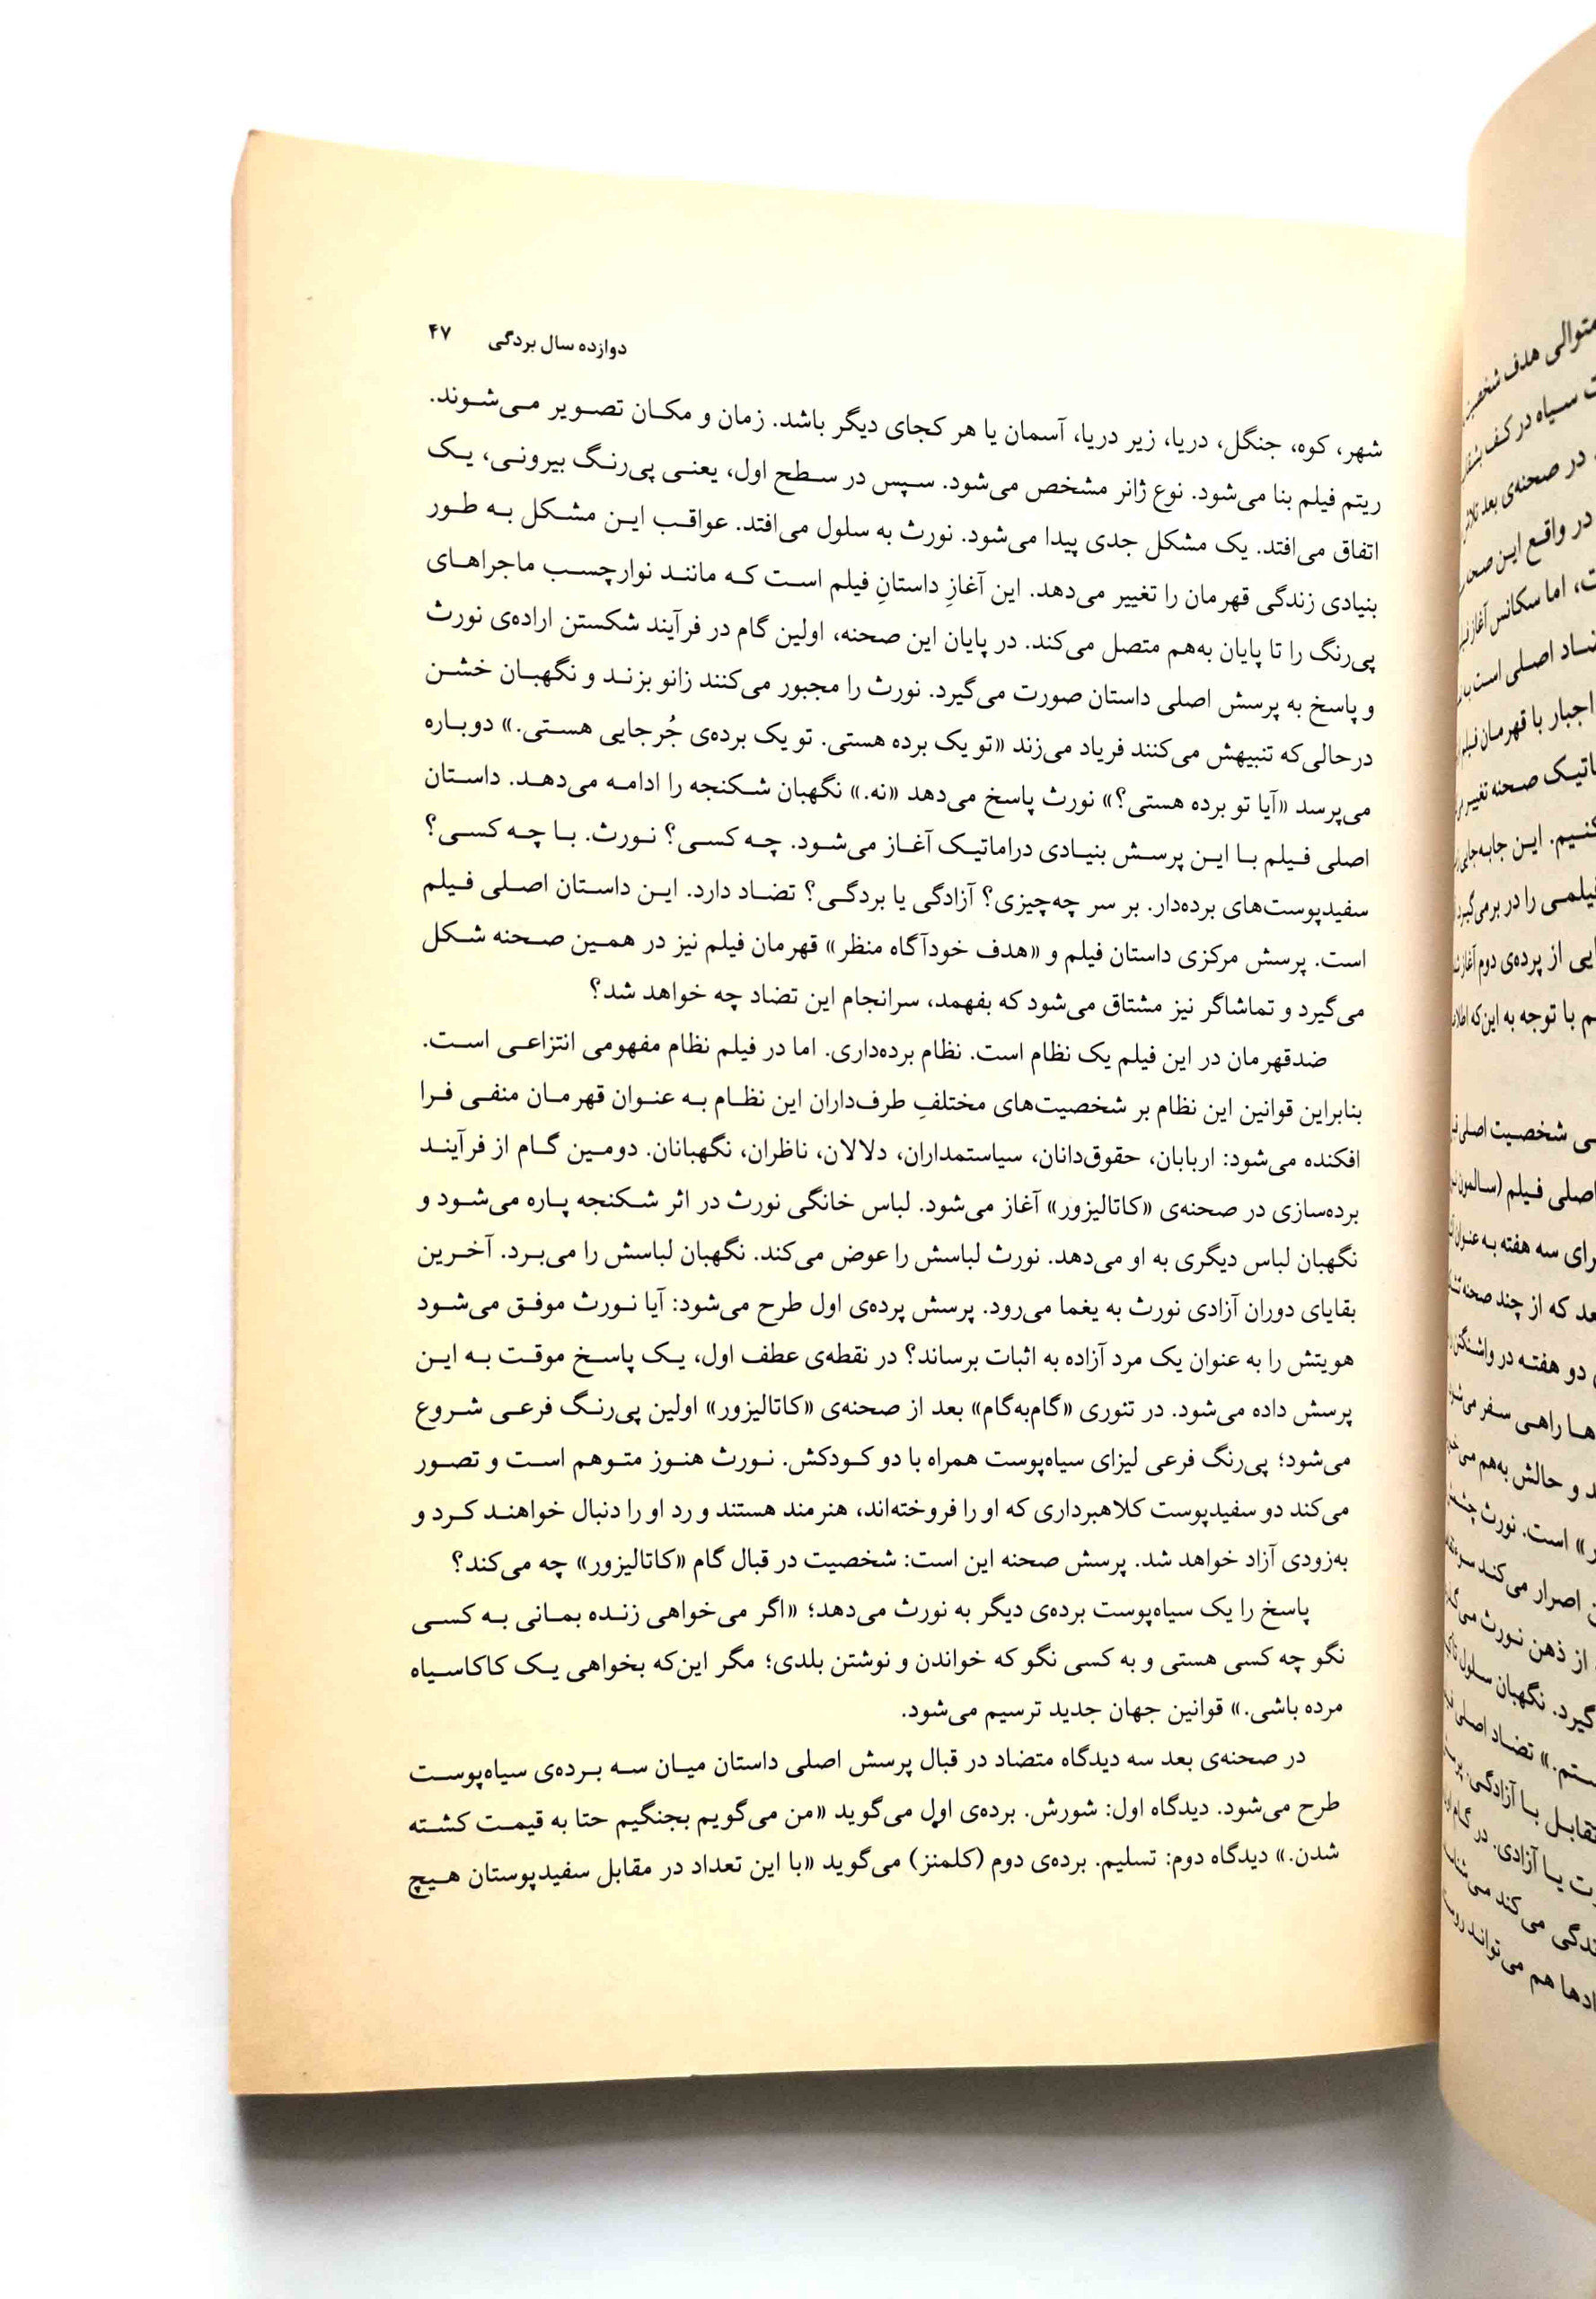 دوازده سال بردگی ۴۷
شهر، کوه، جنگل، دریا، زیر دریا، آسمان یا هر کجای دیگر باشد. زمان و مکان تصویر می‌شوند.
ریتم فیلم بنا می‌شود. نوع ژانر مشخص می‌شود. سپس در سطح اول، یعنی پی‌رنگ بیرونی، یک
اتفاق می‌افتد. یک مشکل جدی پیدا می‌شود. نورث به سلول می‌افتد. عواقب این مشکل به طور
بنیادی زندگی قهرمان را تغییر می‌دهد. این آغازِ داستانِ فیلم است که مانند نوارچسب ماجراهای
پی‌رنگ را تا پایان به‌هم متصل می‌کند. در پایان این صحنه، اولین گام در فرآیند شکستن اراده‌ی نورث
و پاسخ به پرسش اصلی داستان صورت می‌گیرد. نورث را مجبور می‌کنند زانو بزند و نگهبان خشن
درحالی‌که تنبیهش می‌کنند فریاد می‌زند «تو یک برده هستی. تو یک برده‌ی جُرجایی هستی.» دوباره
می‌پرسد «آیا تو برده هستی؟» نورث پاسخ می‌دهد «نه.» نگهبان شکنجه را ادامه می‌دهد. داستان
اصلی فیلم با این پرسش بنیادی دراماتیک آغاز می‌شود. چه کسی؟ نورث. با چه کسی؟
سفیدپوست‌های برده‌دار. بر سر چه‌چیزی؟ آزادگی یا بردگی؟ تضاد دارد. این داستان اصلی فیلم
است. پرسش مرکزی داستان فیلم و «هدف خودآگاه منظر» قهرمان فیلم نیز در همین صحنه شکل
می‌گیرد و تماشاگر نیز مشتاق می‌شود که بفهمد، سرانجام این تضاد چه خواهد شد؟
ضدقهرمان در این فیلم یک نظام است. نظام برده‌داری. اما در فیلم نظام مفهومی انتزاعی است.
بنابراین قوانین این نظام بر شخصیت‌های مختلفِ طرف‌داران این نظام به عنوان قهرمان منفی فرا
افکنده می‌شود: اربابان، حقوق‌دانان، سیاستمداران، دلالان، ناظران، نگهبانان. دومین گام از فرآیند
برده‌سازی در صحنه‌ی «کاتالیزور» آغاز می‌شود. لباس خانگی نورث در اثر شکنجه پاره می‌شود و
نگهبان لباس دیگری به او می‌دهد. نورث لباسش را عوض می‌کند. نگهبان لباسش را می‌برد. آخرین
بقایای دوران آزادی نورث به یغما می‌رود. پرسش پرده‌ی اول طرح می‌شود: آیا نورث موفق می‌شود
هویتش را به عنوان یک مرد آزاده به اثبات برساند؟ در نقطه‌ی عطف اول، یک پاسخ موقت به این
پرسش داده می‌شود. در تئوری «گام‌به‌گام» بعد از صحنه‌ی «کاتالیزور» اولین پی‌رنگ فرعی شروع
می‌شود؛ پی‌رنگ فرعی لیزای سیاه‌پوست همراه با دو کودکش. نورث هنوز متوهم است و تصور
می‌کند دو سفیدپوست کلاهبرداری که او را فروخته‌اند، هنرمند هستند و رد او را دنبال خواهند کرد و
به‌زودی آزاد خواهد شد. پرسش صحنه این است: شخصیت در قبال گام «کاتالیزور» چه می‌کند؟
پاسخ را یک سیاه‌پوست برده‌ی دیگر به نورث می‌دهد؛ «اگر می‌خواهی زنده بمانی به کسی
نگو چه کسی هستی و به کسی نگو که خواندن و نوشتن بلدی؛ مگر این‌که بخواهی یک کاکاسیاه
مرده باشی.» قوانین جهان جدید ترسیم می‌شود.
در صحنه‌ی بعد سه دیدگاه متضاد در قبال پرسش اصلی داستان میان سه برده‌ی سیاه‌پوست
طرح می‌شود. دیدگاه اول: شورش. برده‌ی اول می‌گوید «من می‌گویم بجنگیم حتا به قیمت کشته
شدن.» دیدگاه دوم: تسلیم. برده‌ی دوم (کلمنز) می‌گوید «با این تعداد در مقابل سفیدپوستان هیچ
متوالی هدف
سیاه در کف
در صحنه‌ی بعد
در واقع این
اما سکانس آغاز
اصلی است
اجبار با قهرمان
صحنه تغییر
این جابه‌جایی
را در برمی‌گیرد
از پرده‌ی دوم آغاز
با توجه به این‌که
شخصیت اصلی
اصلی فیلم (سالمون
سه هفته به عنوان
که از چند صحنه
دو هفته در واشنگتن
راهی سفر
و حالش به‌هم
است. نورث
اصرار می‌کند
از ذهن نورث
نگهبان سلول
تضاد اصلی
با آزادگی.
یا آزادی. در گام
می‌کند
هم می‌تواند